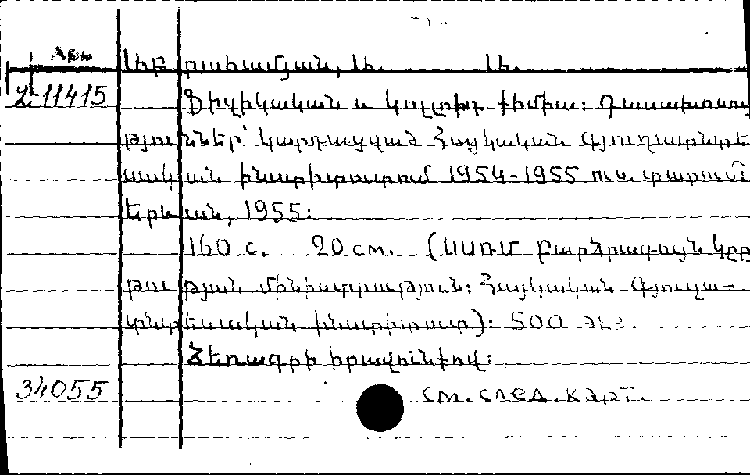 Աբրահամյան, Ա. Ա.
Հ-11415 Ֆիզիկական և կոլոիդ քիմիա: Դասախոսու
թյուններ՝ կարդացված Հայկական Գյուղատնտե
սական ինստիտուտում 1954-1955 ուս. տարում:
Երևան, 1955:
160 с. 20 см. (ՍՍՌՄ Բարձրագույն կրթ
թյան մինիստրություն: Հայկական Գյուղա-
տնտեսական ինստիտուտ): 500
Ձեռագրի իրավունքով:
34055 см. след. карт.